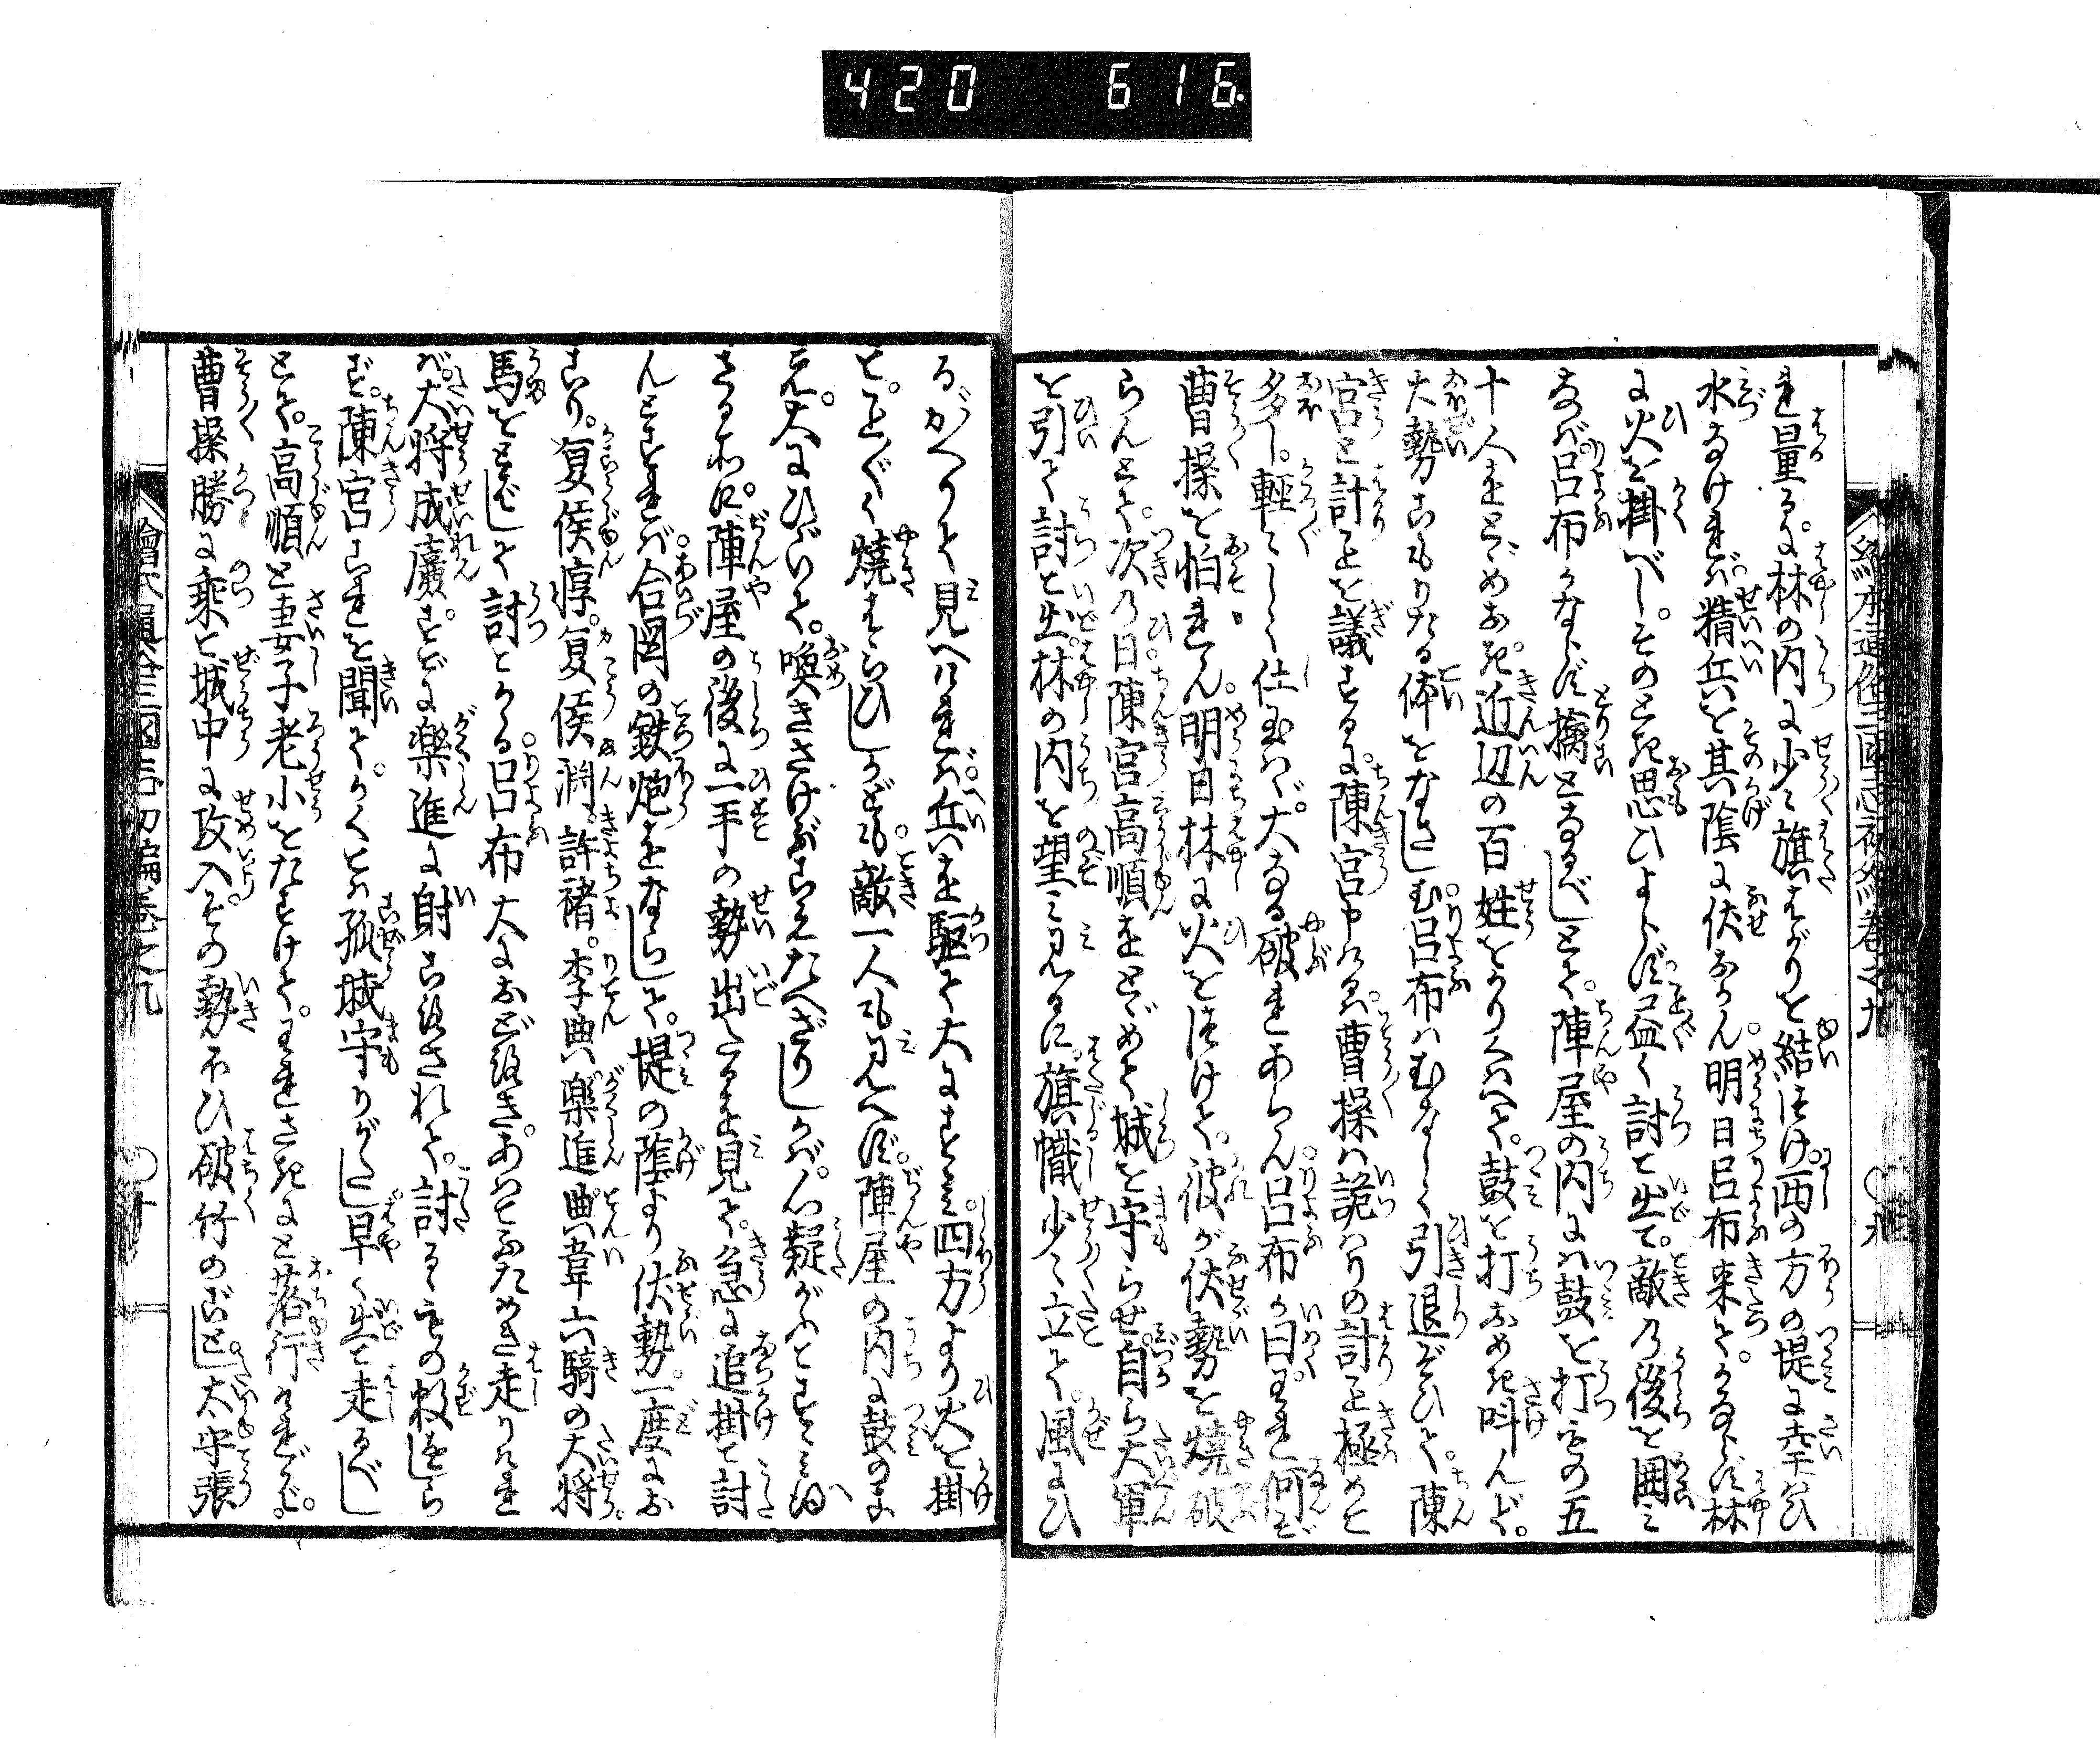 420 616
れ量るに林の内に少々旗ばかりを結つけ。西の方の堤に幸ひ
水なければ。精兵を其陰に伏なかん。明日呂布来て。かならず林
に火を掛べし。そのとき思ひよらず。益々討て出て。敵の後を囲み
なば呂布かならず擒となるべしとて。陣屋の内には鼓を打もの五
十人をとゞめおき。近辺の百姓をかりくはへて。鼓を打おめき叫んで。
大勢こもりたる体をなさしむ。呂布はむなしく引退ぞひて。陳
宮と計ごとを議するに。陳宮申けるは。曹操は詭はりの計ごと極めて
多し。軽々しく仕玉はゞ。大なる破れあらん。呂布が曰。われ何ぞ
曹操を怕れん。明日林に火をつけて。彼が伏勢を焼破
らんとて。次の日陳宮高順をとゞめて城を守らせ。自ら大軍
を引て討て出。林の内を望み見るに。旗幟少々立て。風にひ
るがへりて見へければ。兵を駆て大にすゝみ。四方より火を掛
て。悉く焼はらひしかども。敵一人も見へず。陣屋の内に鼓のを
と。大にひゞいて。喚きさけぶこゑたへざりしかば。心疑がふてすゝみ得
ざる所に。陣屋の後に一手の勢出たるを見て。急に追掛て討
んとすれば。合図の鉄炮をならして。堤の陰より伏勢。一度にお
こり。夏侯惇。夏侯淵。許褚。李典。楽進。典韋。六騎の大将
馬をとばして討てかゝる。呂布大におどろき。あはてふためき走りけれ
ば。大将成廉。すでに楽進に射ころされて。討るゝもの数をしら
ず。陳宮これを聞て。かくては孤城守りがたし。早く出て走るべし
とて。高順と妻子老小をたすけて。われさきにと落行ければ。
曹操勝に乗て城中に攻入。その勢ひ破竹のごとし。太守張